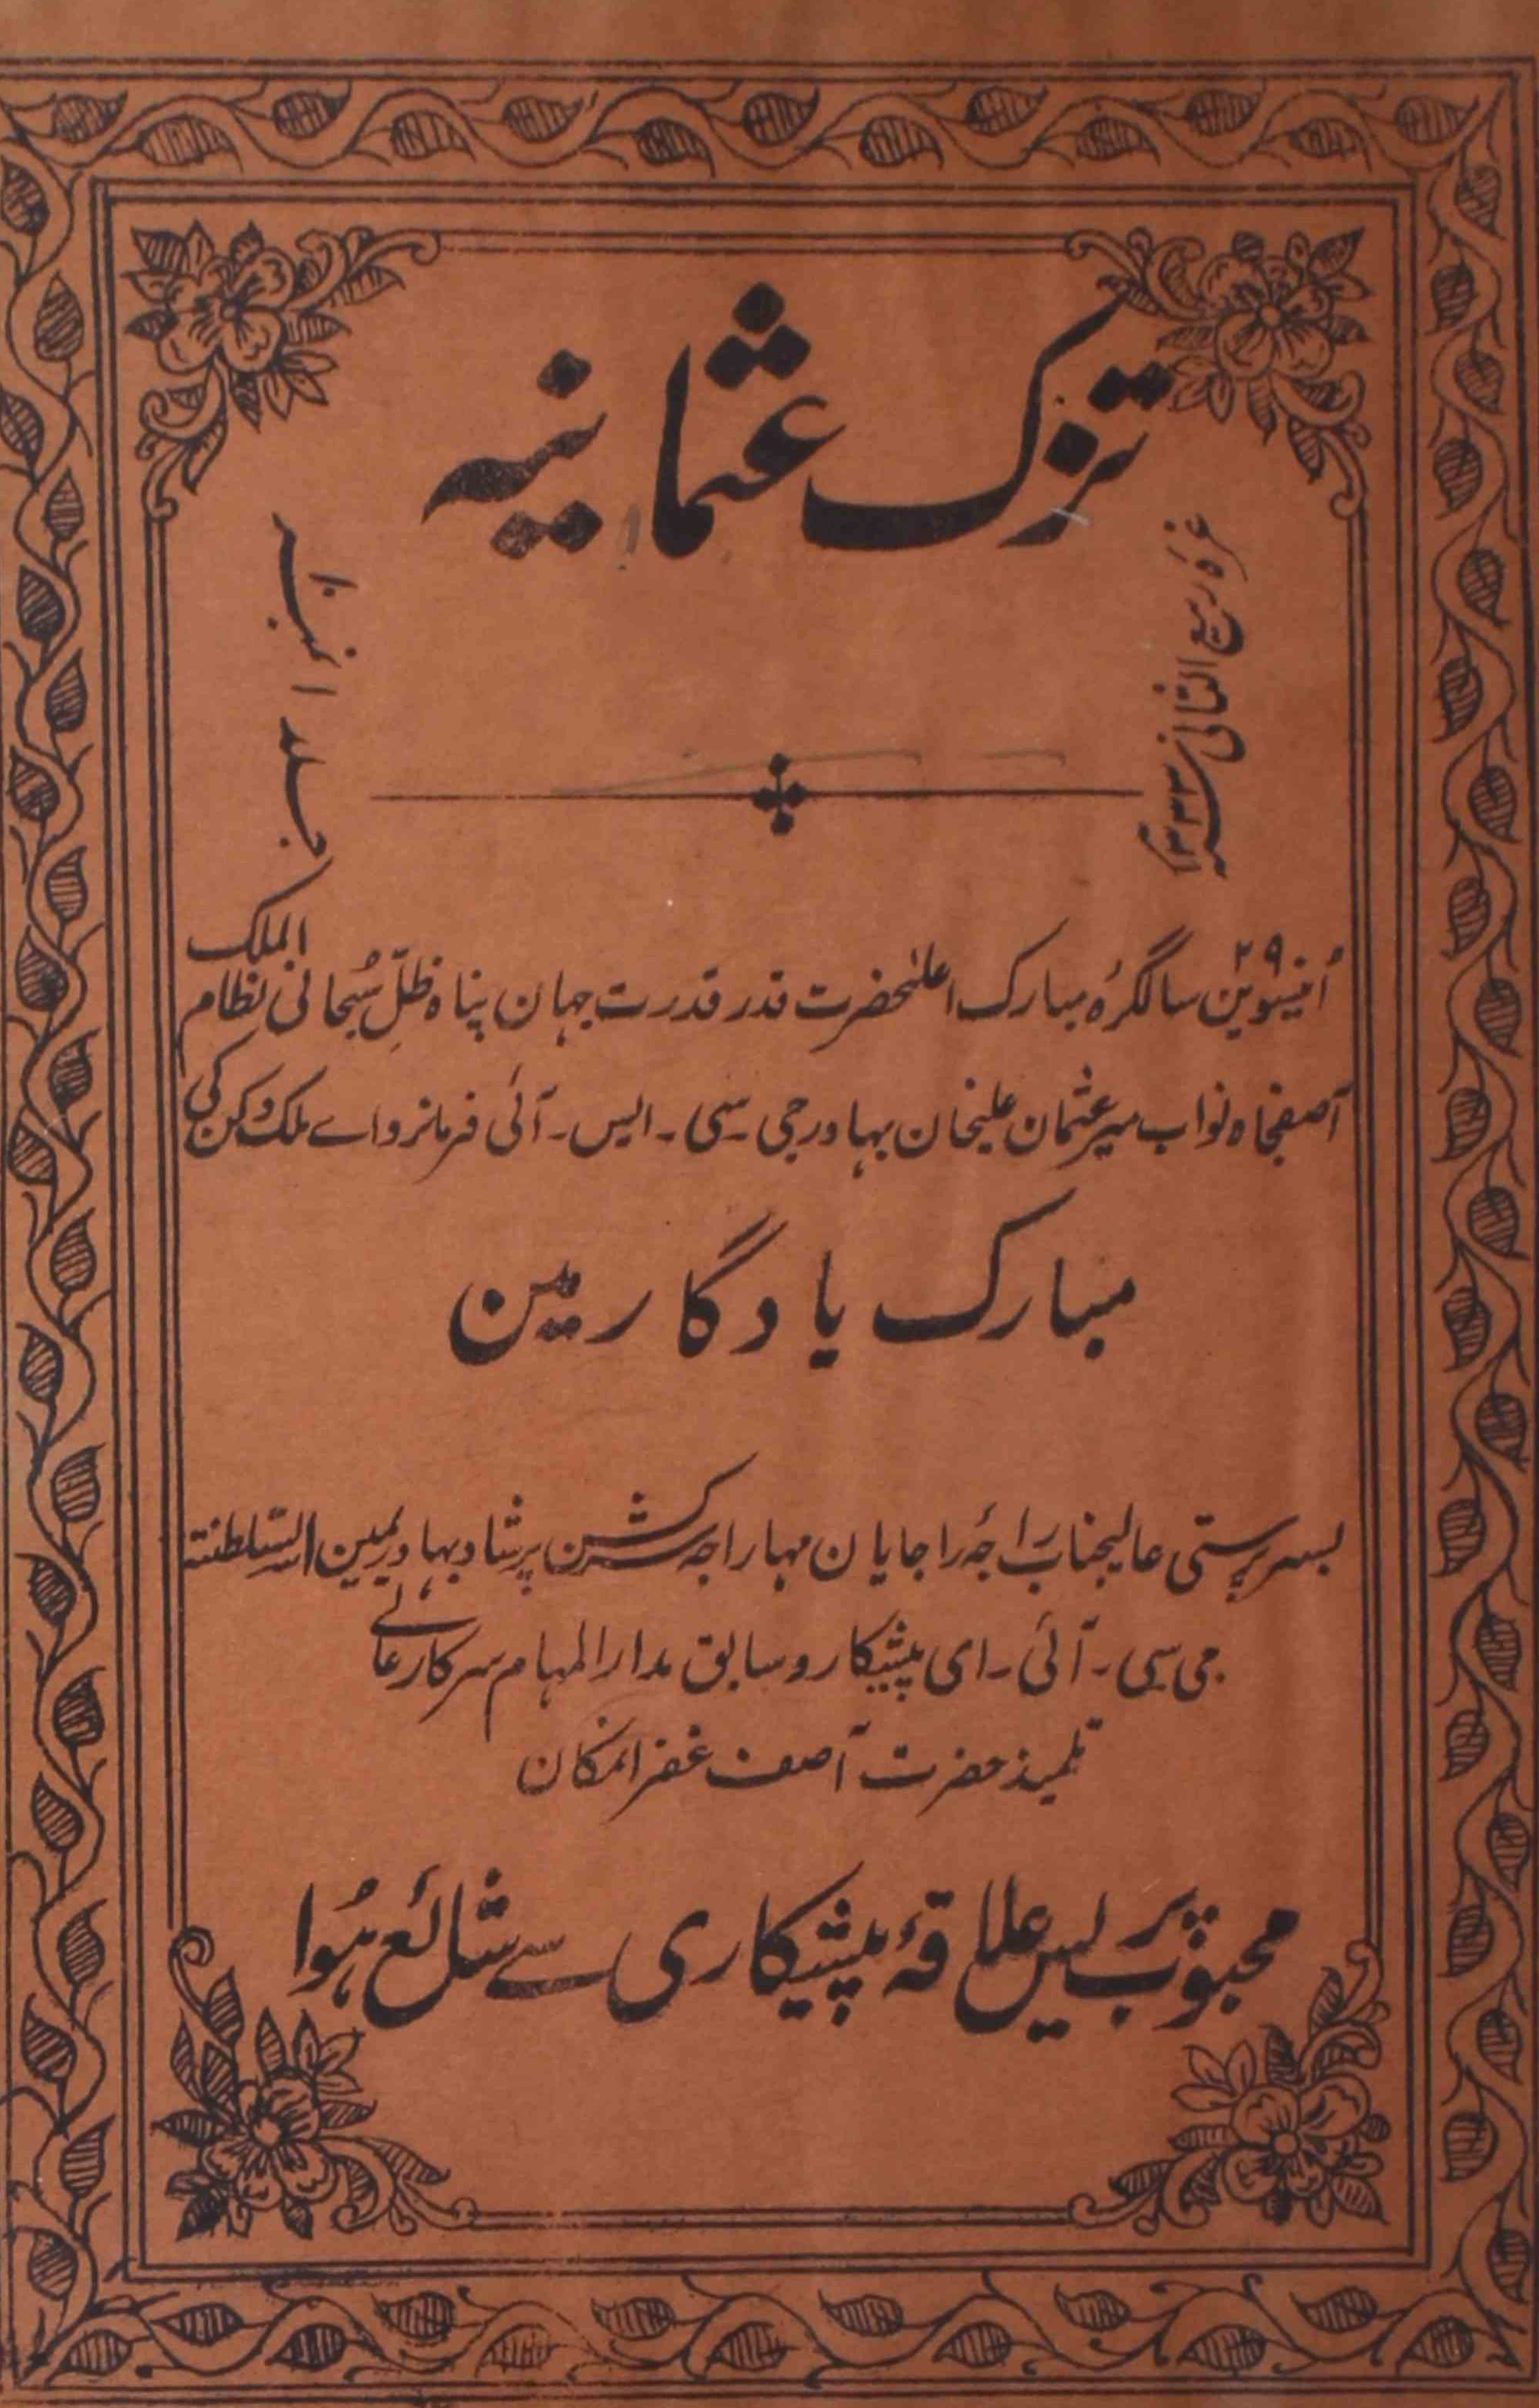 تزک عثمانیہ
غرہ ربیع الثانی سنہ ۱۳۳۳
جلد ا نمبر
اُنیسویں ۲۹ سالگرۂ مبارک اعلیٰحضرت قدر قدرت جہان پناہ ظلِّ سُبحانی نظام الملک
آصفجاہ نواب میر عثمان علیخان بہادر جی ـ سی ـ ایس ـ آئی فرمانرواے ملک دکن کی
مبارک یادگار مین
بسرپرستی عالیجناب راجۂ راجایان مہاراجہ سر کشن پرشاد بہادر یمین السّلطنتہ
جی سی ـ آئی ـ ای پیشکار و سابق مدارالمہام سرکار عالے
تلمیذ حضرت آصف غفرانمکان
محبوب پریس علاقۂ پیشکاری سے شائع ہُوا